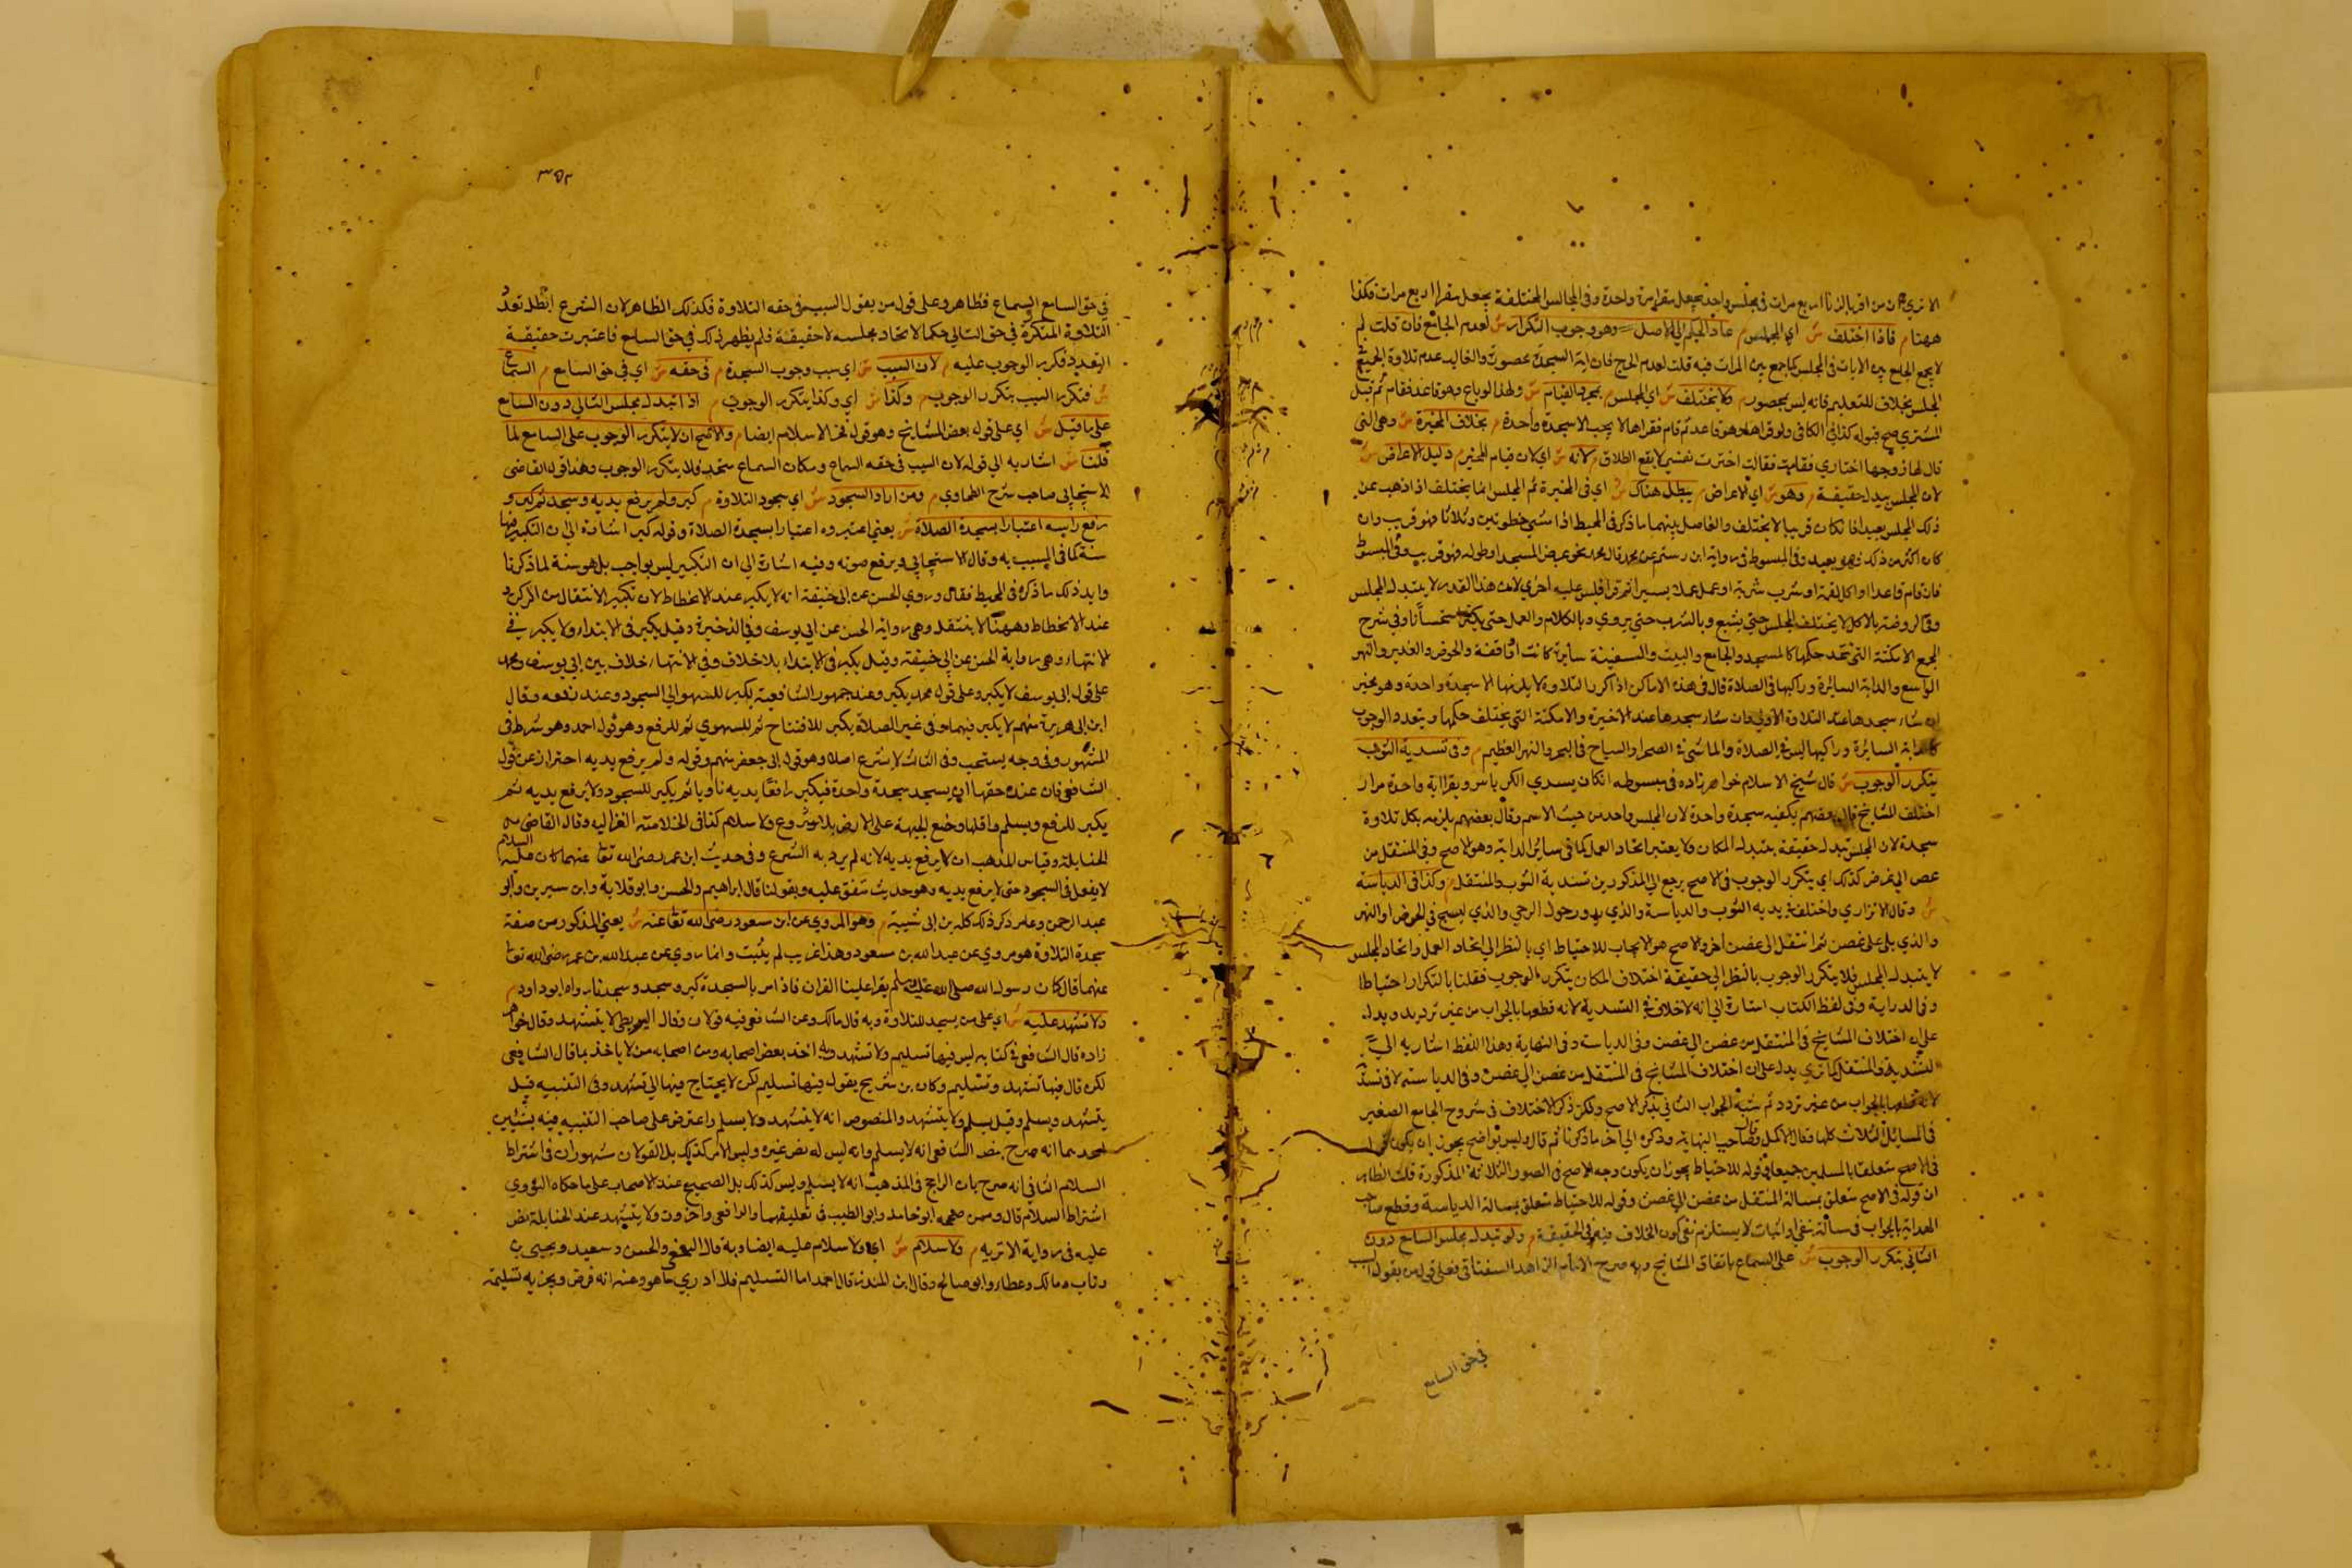 الا تري ان من اقر بالزنا اربع مرات في مجلس واحد يجعل مقرا مرة واحدة وفي المجالس المختلفة يجعل مقرا اربع مرات فكذا
ههنا م فاذا اختلف ش اي المجلس م عاد الحكم الي الاصل ش وهو وجوب التكرار ش لعدم الجامع فان قلت لم
لا يجمع الجامع بين الايات في المجلس كما جمع بين المرات فيه قلت لعدم الحرج فان اية السجدة محصورة والغالب عدم تلاوة الجميع في
المجلس بخلاف للتعليم فانه ليس بمحصور م ولا يختلف ش اي المجلس م بمجرد القيام ش ولهذا لو باع وهو قاعد فقام ثم قبل
المشتري صح قبوله كذا في الكافي ولو قراها وهو قاعد ثم قام فقراها لا يجب الا سجدة واحدة م بخلاف المخيرة ش وهي التي
قال لها زوجها اختاري فقامت فقالت اخترت نفسي لا يقع الطلاق م لانه ش اي لان قيام المخير م دليل الاعراض ش
لان المجلس يبدل حقيقة م وهو ش اي الاعراض م يبطل هناك ش اي في المخيرة ثم المجلس انما يختلف اذا ذهب عن
ذلك المجلس بعيدا فان كان قريبا لا يختلف والفاصل بينهما ما ذكر في المحيط اذا مشي خطوتين وثلاثا فهو قريب وان
كان اكثر من ذلك فهو بعيد وفي المبسوط في رواية ابن رستم عن محمد قال محمد نحو عرض المسجد او طوله فهو قريب وفي المبسوط
فان قام قاعدا او اكل لقمة او شرب شربة او عمل عملا يسيرا ثم قرا فليس عليه اخري لان هذا القدر لا يتبدل المجلس
بالاكل لا يختلف المجلس حتي يشبع وبالشرب حتي يروي وبالكلام والعمل حتي يكثر استحسانا وفي شرح
الجمع الامكنة التي تتحد حكمها كالمسجد والجامع والبيت والسفينة سايرة كانت او واقفة والحوض والغدير والنهر
الواسع والدابة السايرة وراكبها في الصلاة قال في هذه الاماكن اذا كرر التلاوة لا يلزمها الا سجدة واحدة وهو مخير
ان شاء سجدها عند التلاوة الاولي وان شاء سجدها عند الاخيرة والامكنة التي يختلف حكمها ويتعدد الوجوب
كالدابة السايرة وراكبها ليس في الصلاة والماشي في الصحرا والسباح في البحر والنهر العظيم م وفي تسدية الثوب
يتكرر الوجوب ش قال شيخ الاسلام خواهر زاده في مبسوطه ان كان يسدي الكرباس ويقرا اية واحدة مرار
اختلف المشايخ قال بعضهم يكفيه سجدة واحدة لان المجلس واحد من حيث الاسم وقال بعضهم يلزمه بكل تلاوة
سجدة لان المجلس تبدل حقيقة بتبدل المكان ولا يعتبر اتحاد العمل كما في ساير الدابة وهو الاصح وفي المنتقل من
غصن الي غصن كذلك اي يتكرر الوجوب في الاصح يرجع الي المذكورين تسدية الثوب والمنتقل م وكذا في الدياسة
ش وقال الاتراري واختلف في تسدية الثوب والدياسة والذي يدور حول الرحي والذي يسبح في الحوض او النهر
والذي تلي علي غصن ثم انتقل الي غصن اخر والاصح هو الايجاب للاحتياط اي بالنظر الي اتحاد العمل واتحاد المجلس
لا يتبدل المجلس فلا يتكرر الوجوب بالنظر الي حقيقة اختلاف المكان يتكرر الوجوب فقلنا بالتكرار احتياطا
وفي الدراية وفي لفظ الكتاب اشارة الي انه لا خلاف في التسدية لانه قطعها بالجواب من غير ترديد ويدل
علي اختلاف المشايخ في المنتقل من غصن الي غصن وفي الدياسة وفي النهاية وهذا اللفظ اشار به الي
التسدية والمنتقل كما تري يدل علي ان اختلاف المشايخ في المنتقل من غصن الي غصن وفي الدياسة لا في تسدية
لانه قطعها بالجواب من غير تردد ثم شبه الجواب الثاني بذكر الاصح ولكن ذكر الاختلاف في شروح الجامع الصغير
في المسايل الثلاث كلها فقال الاكمل وقال صاحب النهاية وذكره الي اخر ما ذكرنا ثم قال وليس بواضح يجوز ان يكون قوله
في الاصح متعلقا بالمسلين جميعا في قوله للاحتياط يجوز ان يكون وجه الاصح في الصور الثلاثة المذكورة قلت الظاهر
ان قوله في الاصح متعلق بمسالة المنتقل من غصن الي غصن وقوله للاحتياط متعلق بمسالة الدياسة وقطع صاحب
الهداية بالجواب في مسالة بنفي او اثبات لا يستلزم نفي كون الخلاف فيه في الحقيقة م ولو تبدل مجلس السامع دون
التالي يتكرر الوجوب ش علي السامع باتفاق المشايخ وبه صرح الامام الزاهد السفناقي فعلي قول من يقول السبب
في حق السامع
٣٥٢
في حق السامع السماع فظاهر وعلي قول من يقول السبب في حقه التلاوة فكذلك الظاهر لان الشرع ابطل تعدد
التلاوة المتكررة في حق التالي حكما لاتحاد مجلسه لا حقيقة فلم يظهر ذلك في حق السامع فاعتبرت حقيقة
التعدد فكرر الوجوب عليه م لان السبب ش اي سبب وجوب السجدة م في حقه ش اي في حق السامع م السماع
ش فتكرر السبب بتكرر الوجوب م وكذا ش اي وكذا يتكرر الوجوب م اذا تبدل مجلس التالي دون السامع
علي ما قيل ش اي علي قول بعض المشايخ وهو قول فخر الاسلام ايضا م والاصح ان لا يتكرر الوجوب علي السامع لما
قلنا ش اشار به الي قوله لان السبب في حقه السماع ومكان السماع متحد فلا يتكرر الوجوب وهذا قول القاضي
الاسبيجابي صاحب شرح الطحاوي م ومن اراد السجود ش اي سجود التلاوة م كبر ولم يرفع يديه وسجد ثم كبر و
رفع راسه اعتبارا بسجدة الصلاة ش يعني اعتبروه اعتبارا بسجدة الصلاة وقوله كبر اشارة الي ان التكبير فيها
سنة كما في المسبب به وقال الاسبيجابي ويرفع صوته وفيه اشارة الي ان التكبير ليس بواجب بل هو سنة لما ذكرنا
وايد ذلك ما ذكره في المحيط فقال وروي الحسن عن ابي حنيفة انه لا يكبر عند الانحطاط لان تكبير الانتقال من الركن
عند الانحطاط وههنا لا ينتقل وهي رواية الحسن عن ابي يوسف وفي الذخيرة وقيل يكبر في الابتداء ولا يكبر في
الانتهاء وهي رواية الحسن عن ابي حنيفة وقيل يكبر في الابتداء بلا خلاف وفي الانتهاء خلاف بين ابي يوسف ومحمد
علي قول ابي يوسف لا يكبر وعلي قول محمد يكبر وعند جمهور الشافعية يكبر للسهو الي السجود وعند رفعه وقال
ابن ابي هريرة منهم لا يكبر فيهما وفي غير الصلاة يكبر للافتتاح ثم للسهوي ثم للرفع وهو قول احمد وهو شرط في
المشهور وفي وجه يستحب وفي الثالث لا يشرع اصلا وهو قول ابي جعفر منهم وقوله ولم يرفع يديه احتراز عن قول
الشافعي فان عنده حقها ان يسجد سجدة واحدة فيكبر رافعا يديه ناويا ثم يكبر للسجود ولا يرفع يديه ثم
يكبر للرفع ويسلم واقلها وضع الجبهة علي الارض بلا شروع ولا سلام كذا في الخلاصة الغزاليه وقال القاضي من
الحنابلة وقياس المذهب ان لا يرفع يديه لانه لم يرد به الشرع وفي حديث ابن عمر رضي الله تعا عنهما كان عليه السلام
لا يفعل في السجود حتي لا يرفع يديه وهو حديث متفق عليه وبقولنا قال ابراهيم والحسن وابو قلابة وابن سيرين وابو
عبد الرحمن وعامر ذكر ذلك كله بن ابي شيبة م وهو المروي عن ابن مسعود رضي الله تعا عنه ش يعني المذكور من صفة
سجدة التلاوة هو مروي عن عبد الله بن مسعود وهذا غريب لم يثبت وانما روي عن عبد الله بن عمر رضي الله تعا
عنهما قال كان رسول الله صلي الله عليه وسلم يقرا علينا القران فاذا مر بالسجدة كبر وسجد وسجدنا رواه ابو داود م
ولا تشهد عليه ش اي علي من يسجد للتلاوة وبه قال مالك وعن الشافعي فيه قولان وقال البويطي لا يتشهد وقال خواهر
زاده قال الشافعي في كتابه ليس فيها تسليم ولا تشهد وبه اخذ بعض اصحابه ومن اصحابه من لا ياخذ بما قال الشافعي
لكن قال فيها تشهد وتسليم وكان بن شريح يقول فيها تسليم لكن لا يحتاج فيها الي تشهد وفي التنبيه قيل
يتشهد ويسلم وقيل يسلم ولا يتشهد والمنصوص انه لا يتشهد ولا يسلم واعترض علي صاحب التنبيه فيه بشيئين
احدهما انه صرح بنص الشافعي انه لا يسلم وانه ليس له نص غيره وليس الامر كذلك بل القولان مشهوران في اشتراط
السلام الثاني انه صرح بان الراجح في المذهب انه لا يسلم وليس كذلك بل الصحيح عند الاصحاب علي ما حكاه النووي
اشتراط السلام قال وممن صححه ابو حامد وابو الطيب في تعليقهما والرافعي واخرون ولا يتشهد عند الحنابلة نص
عليه في رواية الاثرم م ولا سلام ش اي ولا سلام عليه ايضا وبه قال النخعي والحسن وسعيد ويحيي بن
وثاب ومالك وعطاء وابو صالح وقال ابن المنذر قال احمد اما التسليم فلا ادري ما هو وعنه انه فرض ويجزيه تسليمة